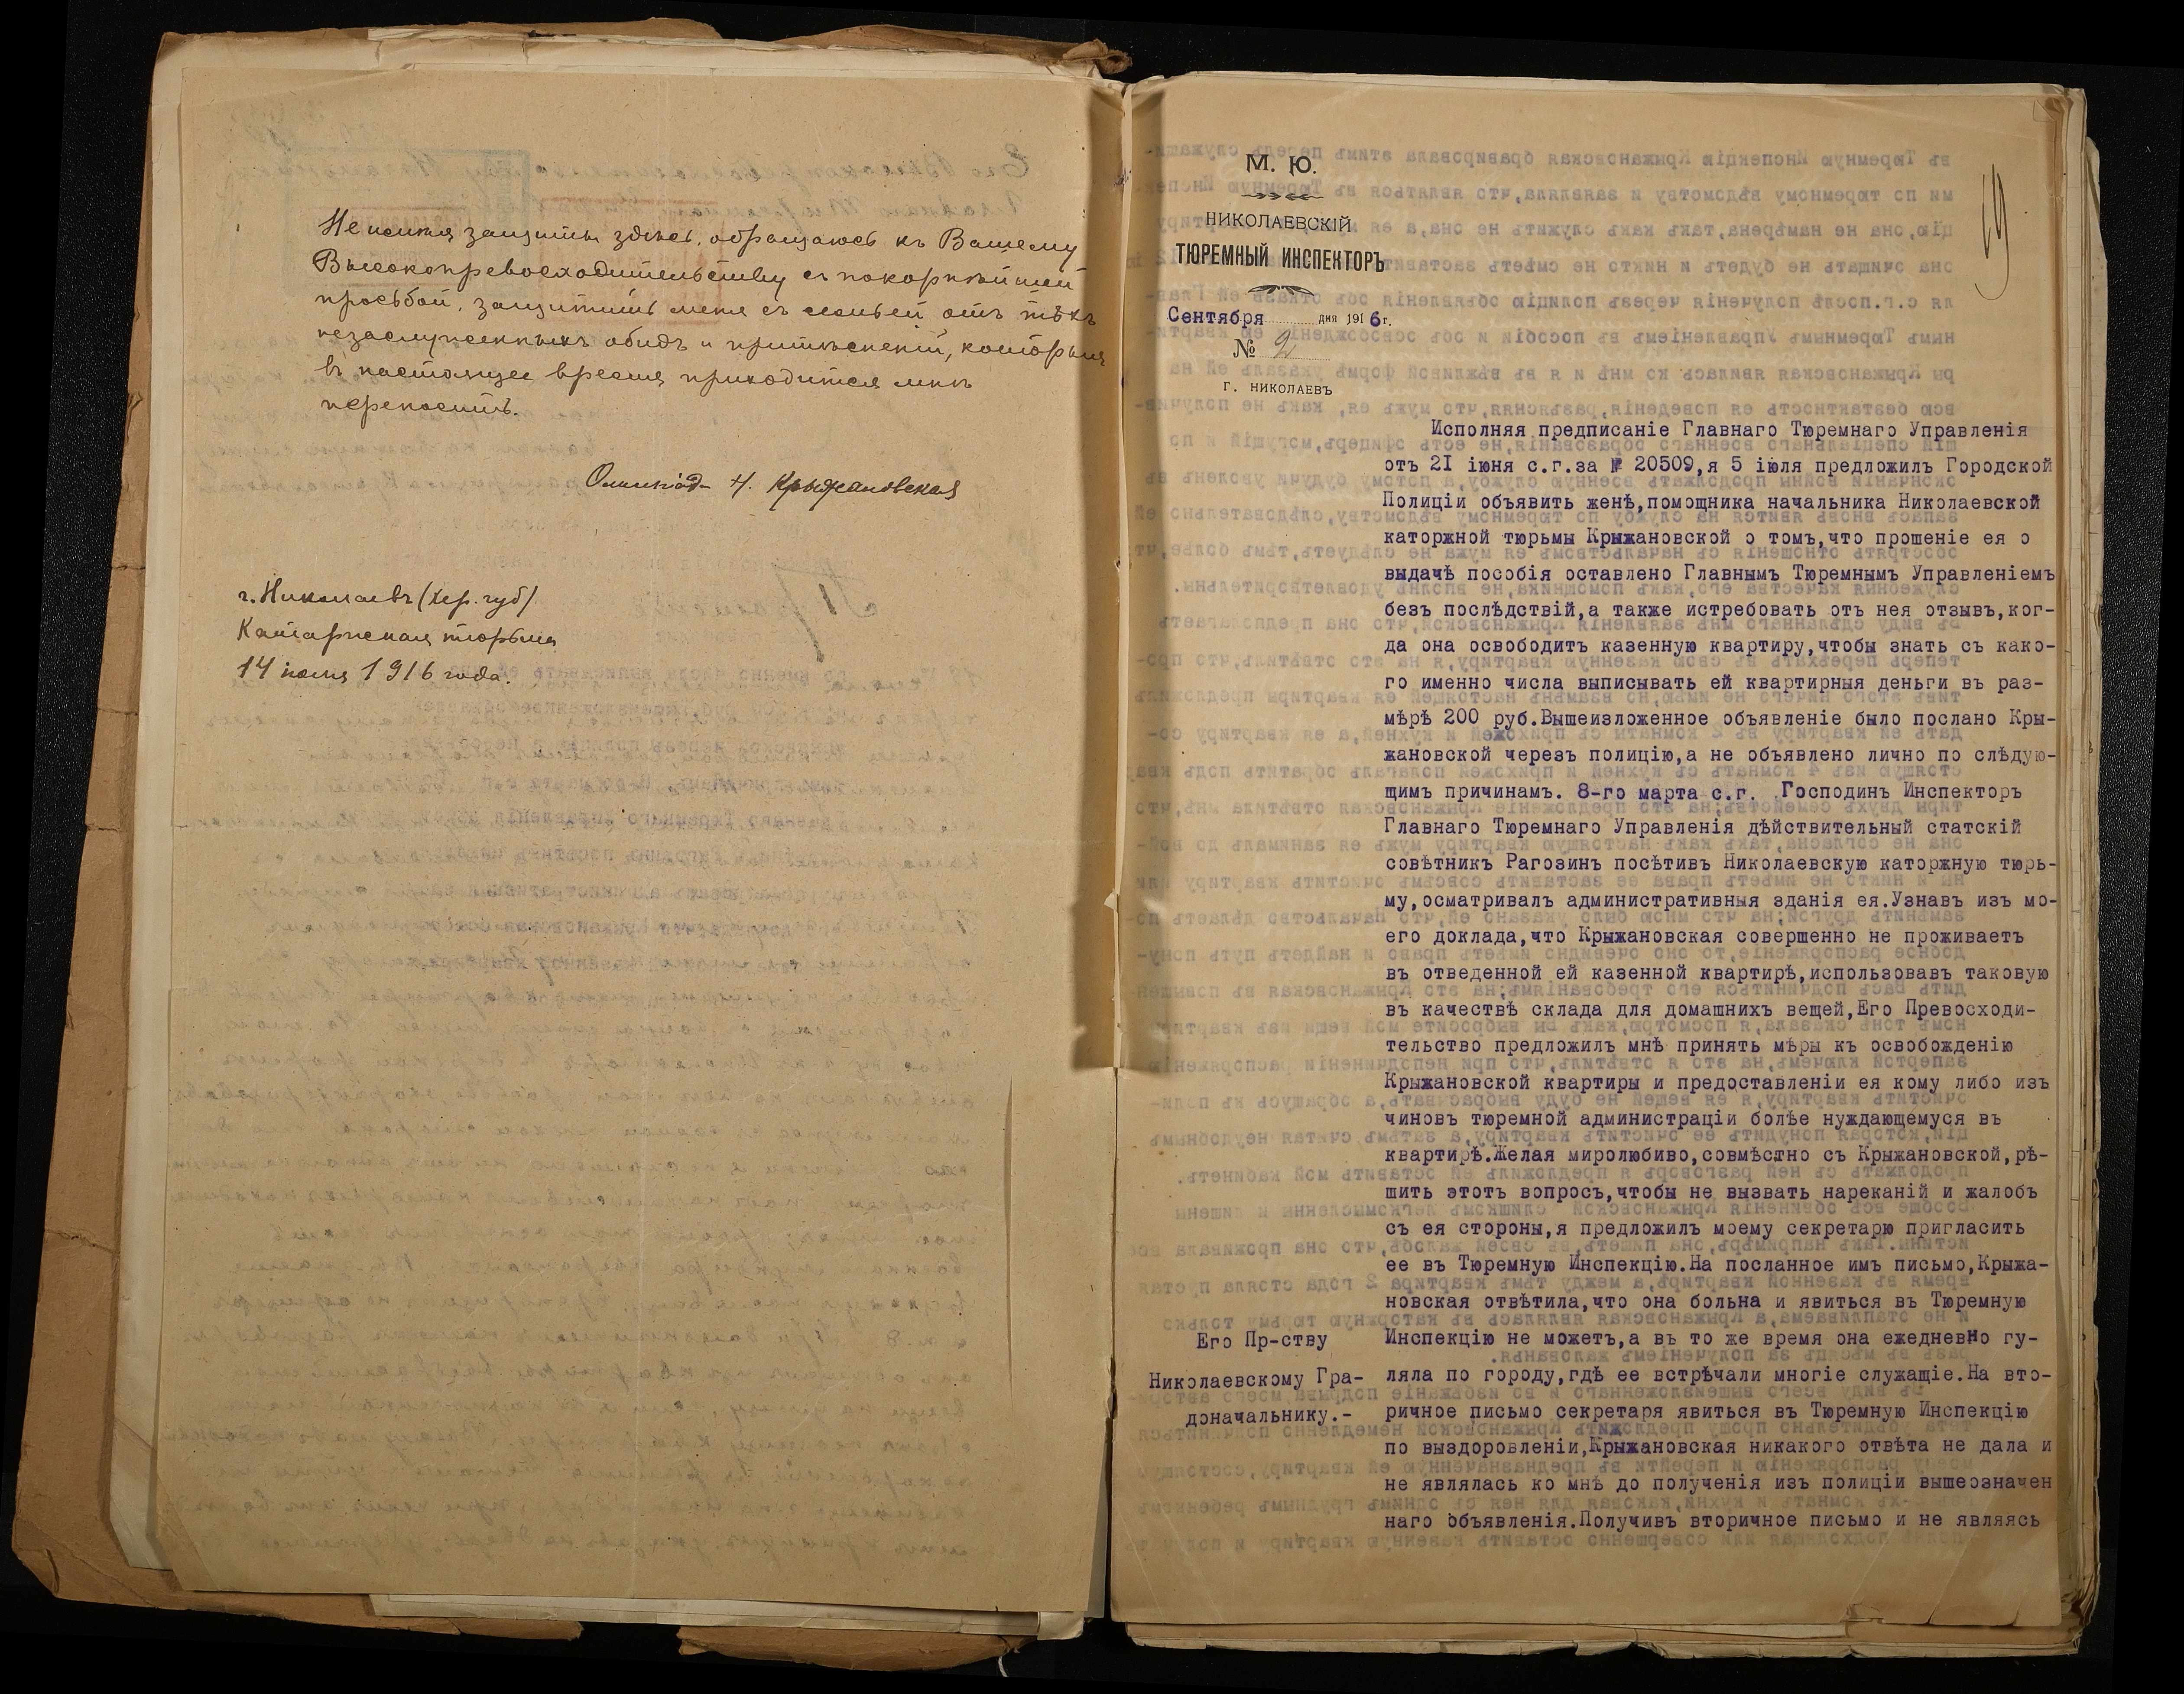 Не имѣя защиты здѣсь, обращаюсь къ Вашему
Высокопревосходительству съ покорнѣйшей
просьбой, защитить меня съ семьей отъ тѣхъ
незаслуженныхъ обидъ и притѣсненій, которыя
въ настоящее время приходится мнѣ
переносить.
Н. Крыжановская
г. Николаевъ (Хер. губ)
Каторжная тюрьма
14 1916 года.
19
М. Ю.
НИКОЛАЕВСКІЙ
ТЮРЕМНЫЙ ИНСПЕКТОРЪ
Сентября дня 1916г.
№ 2
г. НИКОЛАЕВЪ
Исполняя предписаніе Главнаго Тюремнаго Управленія
отъ 2I іюня с.г.за № 20509,я 5 іюля предложилъ Городской
Полиціи объявить женѣ,помощника начальника Николаевской
каторжной тюрьмы Крыжановской о томъ,что прошеніе ея о
выдачѣ пособія оставлено Главнымъ Тюремнымъ Управленіемъ
безъ послѣдствій,а также истребовать отъ нея отзывъ,ког-
да она освободитъ казенную квартиру,чтобы знать съ како-
го именно числа выписывать ей квартирныя деньги въ раз-
мѣрѣ 200 руб.Вышеизложенное объявленіе было послано Кры-
жановской черезъ полицію,а не объявлено лично по слѣдую-
щимъ причинамъ. 8-го марта с.г. Господинъ Инспекторъ
Главнаго Тюремнаго Управленія дѣйствительный статскій
совѣтникъ Рагозинъ посѣтивъ Николаевскую каторжную тюрь-
му,осматривалъ административныя зданія ея.Узнавъ изъ мо-
его доклада,что Крыжановская совершенно не проживаетъ
въ отведенной ей казенной квартирѣ,использовавъ таковую
въ качествѣ склада для домашнихъ вещей,Его Превосходи-
тельство предложилъ мнѣ принять мѣры къ освобожденію
Крыжановской квартиры и предоставленіи ея кому либо изъ
чиновъ тюремной администраціи болѣе нуждающемуся въ
квартирѣ.Желая миролюбиво,совмѣстно съ Крыжановской,рѣ-
шить этотъ вопросъ,чтобы не вызвать нареканій и жалобъ
съ ея стороны,я предложилъ моему секретарю пригласить
ее въ Тюремную Инспекцію.На посланное имъ письмо,Крыжа-
новская отвѣтила,что она больна и явиться въ Тюремную
Инспекцію не можетъ,а въ то же время она ежедневно гу-
ляла по городу,гдѣ ее встрѣчали многіе служащіе.На вто-
ричное письмо секретаря явиться въ Тюремную Инспекцію
по выздоровленіи,Крыжановская никакого отвѣта не дала и
не являлась ко мнѣ до полученія изъ полиціи вышеозначен
наго объявленія.Получивъ вторичное письмо и не являясь
Его Пр-ству
Николаевскому Гра-
доначальнику.-